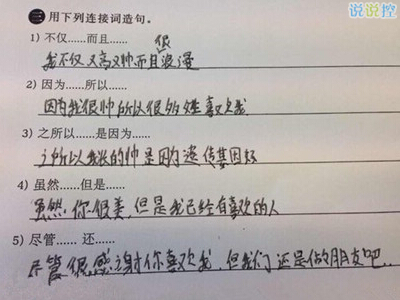 说说控
三 用下列连接词造句。
1) 不仅……而且……
很
我不仅又高又帅而且浪漫
2) 因为……所以……
因为我很帅所以很多姓喜欢我
3) 之所以……是因为……
之所以我长的帅是因为遗传基因好
4) 虽然……但是……
虽然你很美,但是我已经有喜欢的人
5) 尽管…… 还……
尽管很感谢你喜欢我,但我们还是做朋友吧...